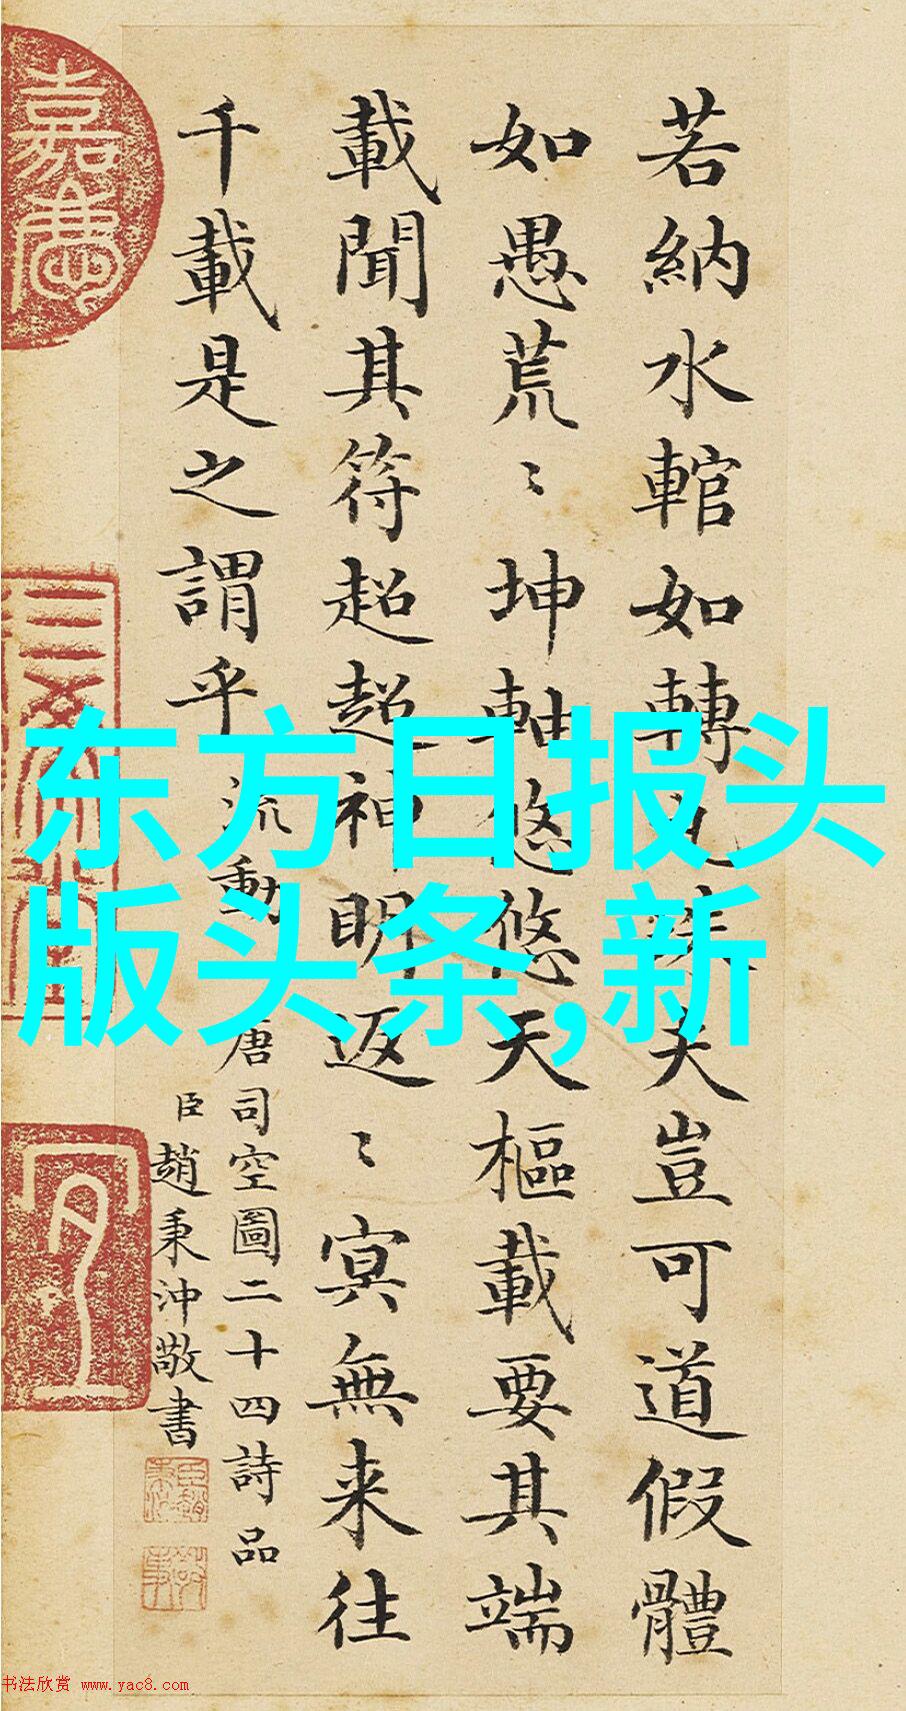 若納水輨如轉丸珠夫豈可道假體
如愚荒〻坤軸悠悠天樞載要其端
載聞其符超超神明返〻冥無来往
千載是之謂乎 流動
唐司空圖二十四詩品
臣趙秉沖敬書
嘉慶
东方日报头
版头条,新
书法欣赏 www.yac8.com